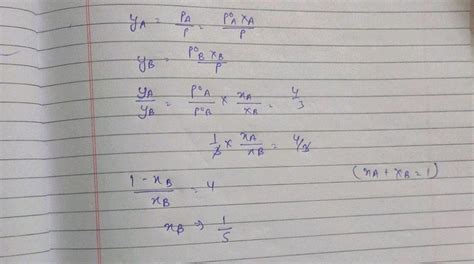 y_A = p_A / P = p°_A x_A / P
y_B = p°_B x_B / P
y_A / y_B = p°_A / p°_A × x_A / x_B = 4 / 3
1/3 × x_A / x_B = 4/3
(x_A + x_B = 1)
1 - x_B / x_B = 4
x_B → 1/5